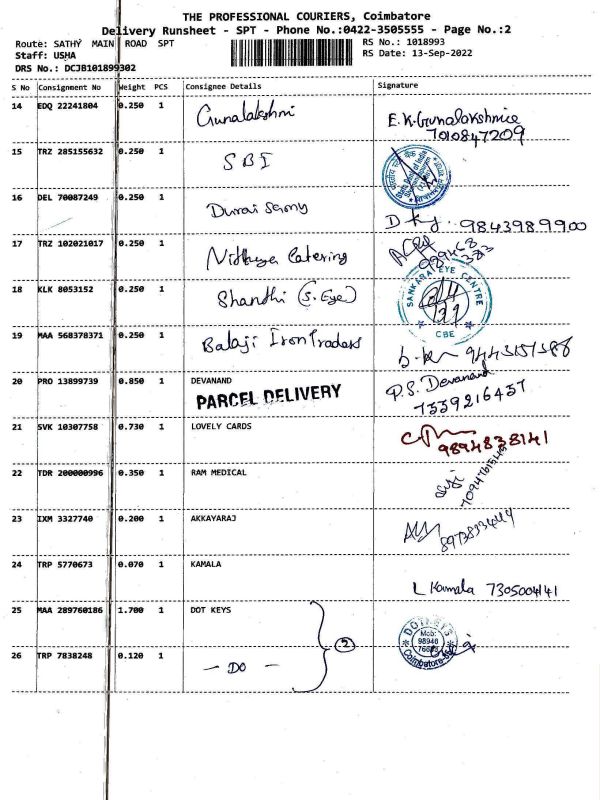 THE PROFESSIONAL COURIERS, Coimbatore
Delivery Runsheet - SPT - Phone No.:0422-3505555 - Page No.:2
Route: SATHY MAIN ROAD SPT
RS No.: 1018993
Staff: USHA
RS Date: 13-Sep-2022
DRS No.: DCJB101899302
S No Consignment No Weight PCS Consignee Details Signature
14 EDQ 22241804 0.250 1 Gunalakshmi E.K.Gunalakshmie
7010847209
15 TRZ 285155632 0.250 1 SBI
16 DEL 70087249 0.250 1 Durai Samy
9843989900
17 TRZ 102021017 0.250 1 Nidhya Catering
18 KLK 8053152 0.250 1 Shanthi (S. Eye) SANKARA EYE CENTRE
CBE
19 MAA 568378371 0.250 1 Balaji Iron Traders
20 PRO 13899739 0.850 1 DEVANAND P.S. Devanand
PARCEL DELIVERY 7339216437
21 SVK 10307758 0.730 1 LOVELY CARDS
9894838141
22 TDR 200000996 0.350 1 RAM MEDICAL
23 IXM 3327740 0.200 1 AKKAYARAJ
24 TRP 5770673 0.070 1 KAMALA
L Kamala 7305004141
25 MAA 289760186 1.700 1 DOT KEYS
2
DOT KEYS
Mob:
98946
Coimbatore
26 TRP 7838248 0.120 1 - DO -